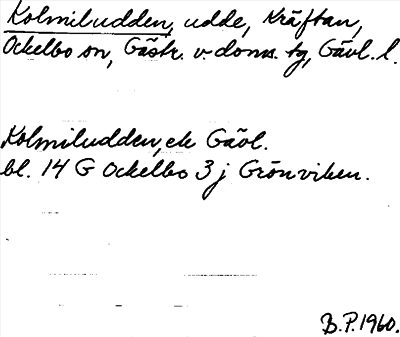 Kolmiludden, udde, Kräftan,
Ockelbo sn, Gästr. v. doms. tg, Gävl. l.
Kolmiludden, ek Gävl.
bl. 14 G Ockelbo 3 j Grönviken.
B.P. 1960.